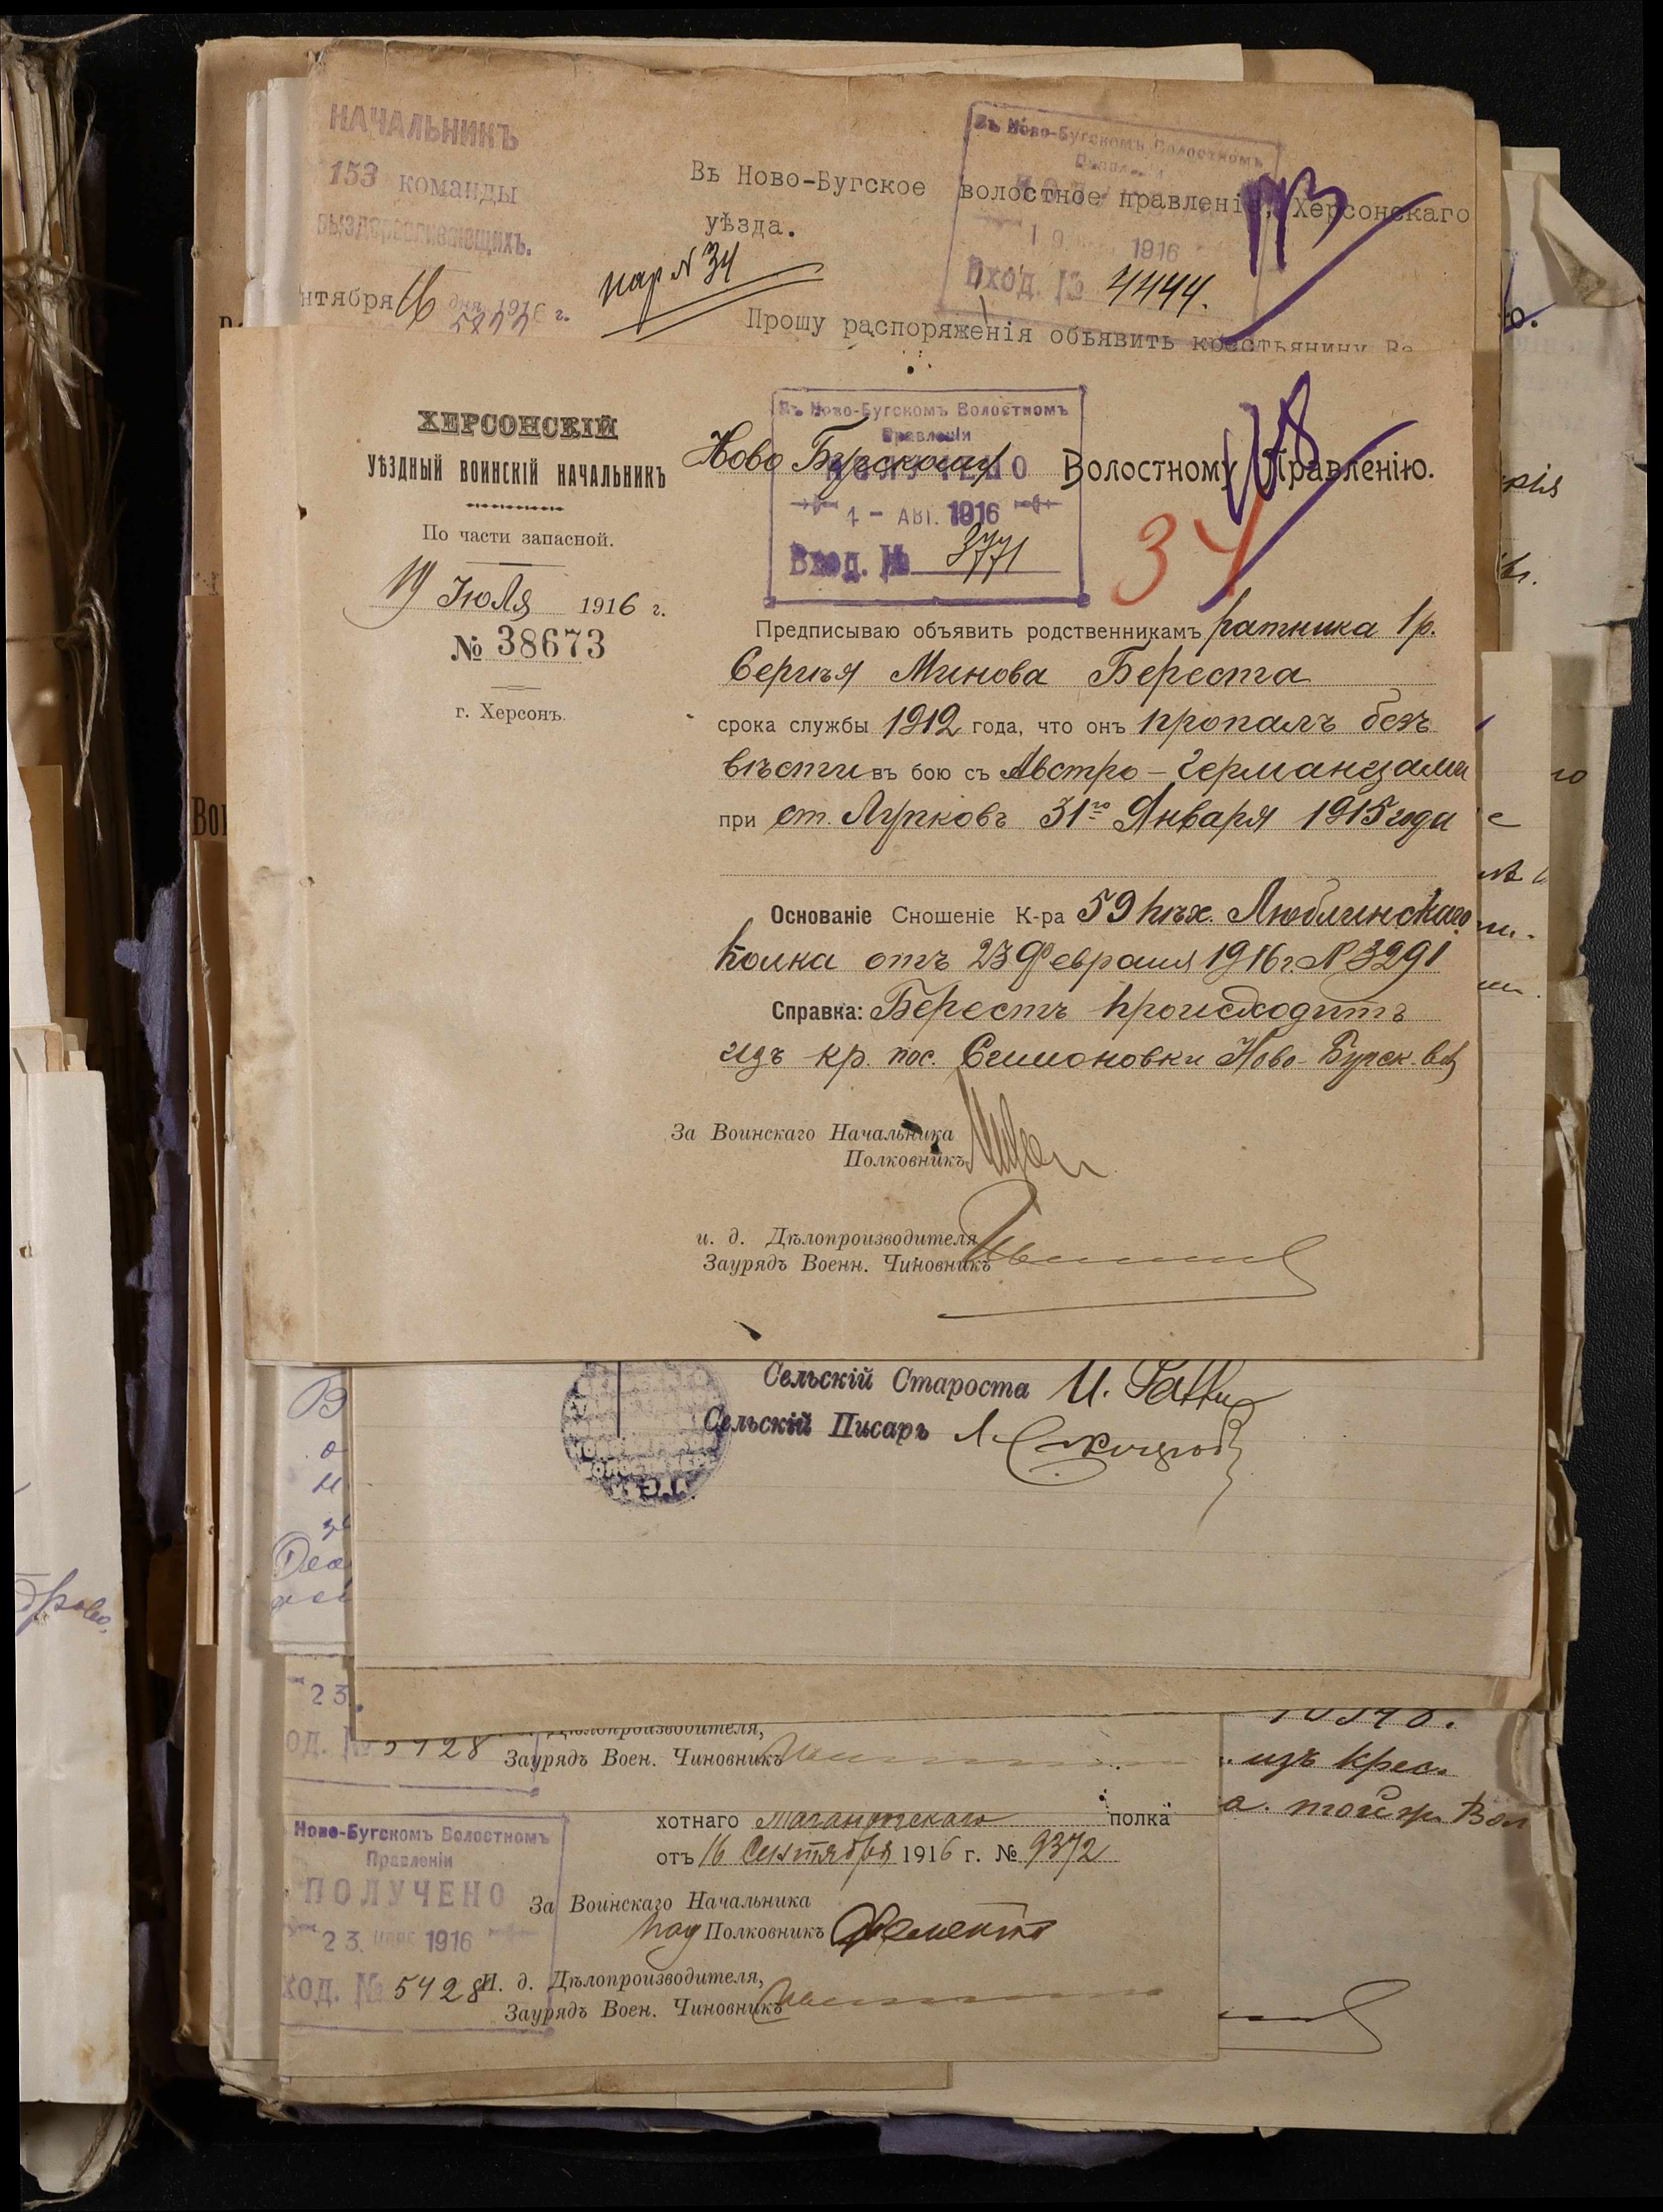 НАЧАЛЬНИКЪ
153 команды
выздоравливающихъ.
нтября 16 дня 1916 г.
Въ Ново-Бугское волостное правленіе, Херсонскаго
уѣзда.
нар N 34
Въ Ново-Бугскомъ Волостномъ
Правленіи
19 1916
Вход. № 4444.
Прошу распоряженія объявить крестьянину Ва
ХЕРСОНСКІЙ
УѢЗДНЫЙ ВОИНСКІЙ НАЧАЛЬНИКЪ
По части запасной.
19 Июля 1916 г.
№ 38673
г. Херсонъ.
Въ Ново-Бугскомъ Волостномъ
Правленіи
ПОЛУЧЕНО
4 - АВГ. 1916
Вход. № 3771
Ново Бугскому Волостному Правленію.
34
Предписываю объявить родственникамъ ратника 1 р.
Сергѣя Минова Береста
срока службы 1912 года, что онъ пропалъ безъ
вѣсти въ бою съ Австро-Германцами
при ст. Лупковъ 31го Января 1915 года
Основаніе Сношеніе К-ра 59 пѣх. Люблинскаго
полка отъ 23 Февраля 1916 г. N 3291
Справка: Берестъ происходитъ
изъ кр. пос. Симоновки Ново-Бугск. вол
За Воинскаго Начальника
Полковникъ
и. д. Дѣлопроизводителя
Заурядъ Военн. Чиновникъ
Сельскій Староста И.
Сельскій Писарь Л.
УѢЗДА
23
ОД. № 5428
Дѣлопроизводителя,
Заурядъ Воен. Чиновникъ
изъ крес.
а. тойж. Вол
хотнаго полка
отъ 16 Сентября 1916 г. № 9372
Ново-Бугскомъ Волостномъ
Правленіи
ПОЛУЧЕНО
23 1916
ХОД. № 5428
За Воинскаго Начальника
под Полковникъ
И. д. Дѣлопроизводителя,
Заурядъ Воен. Чиновникъ